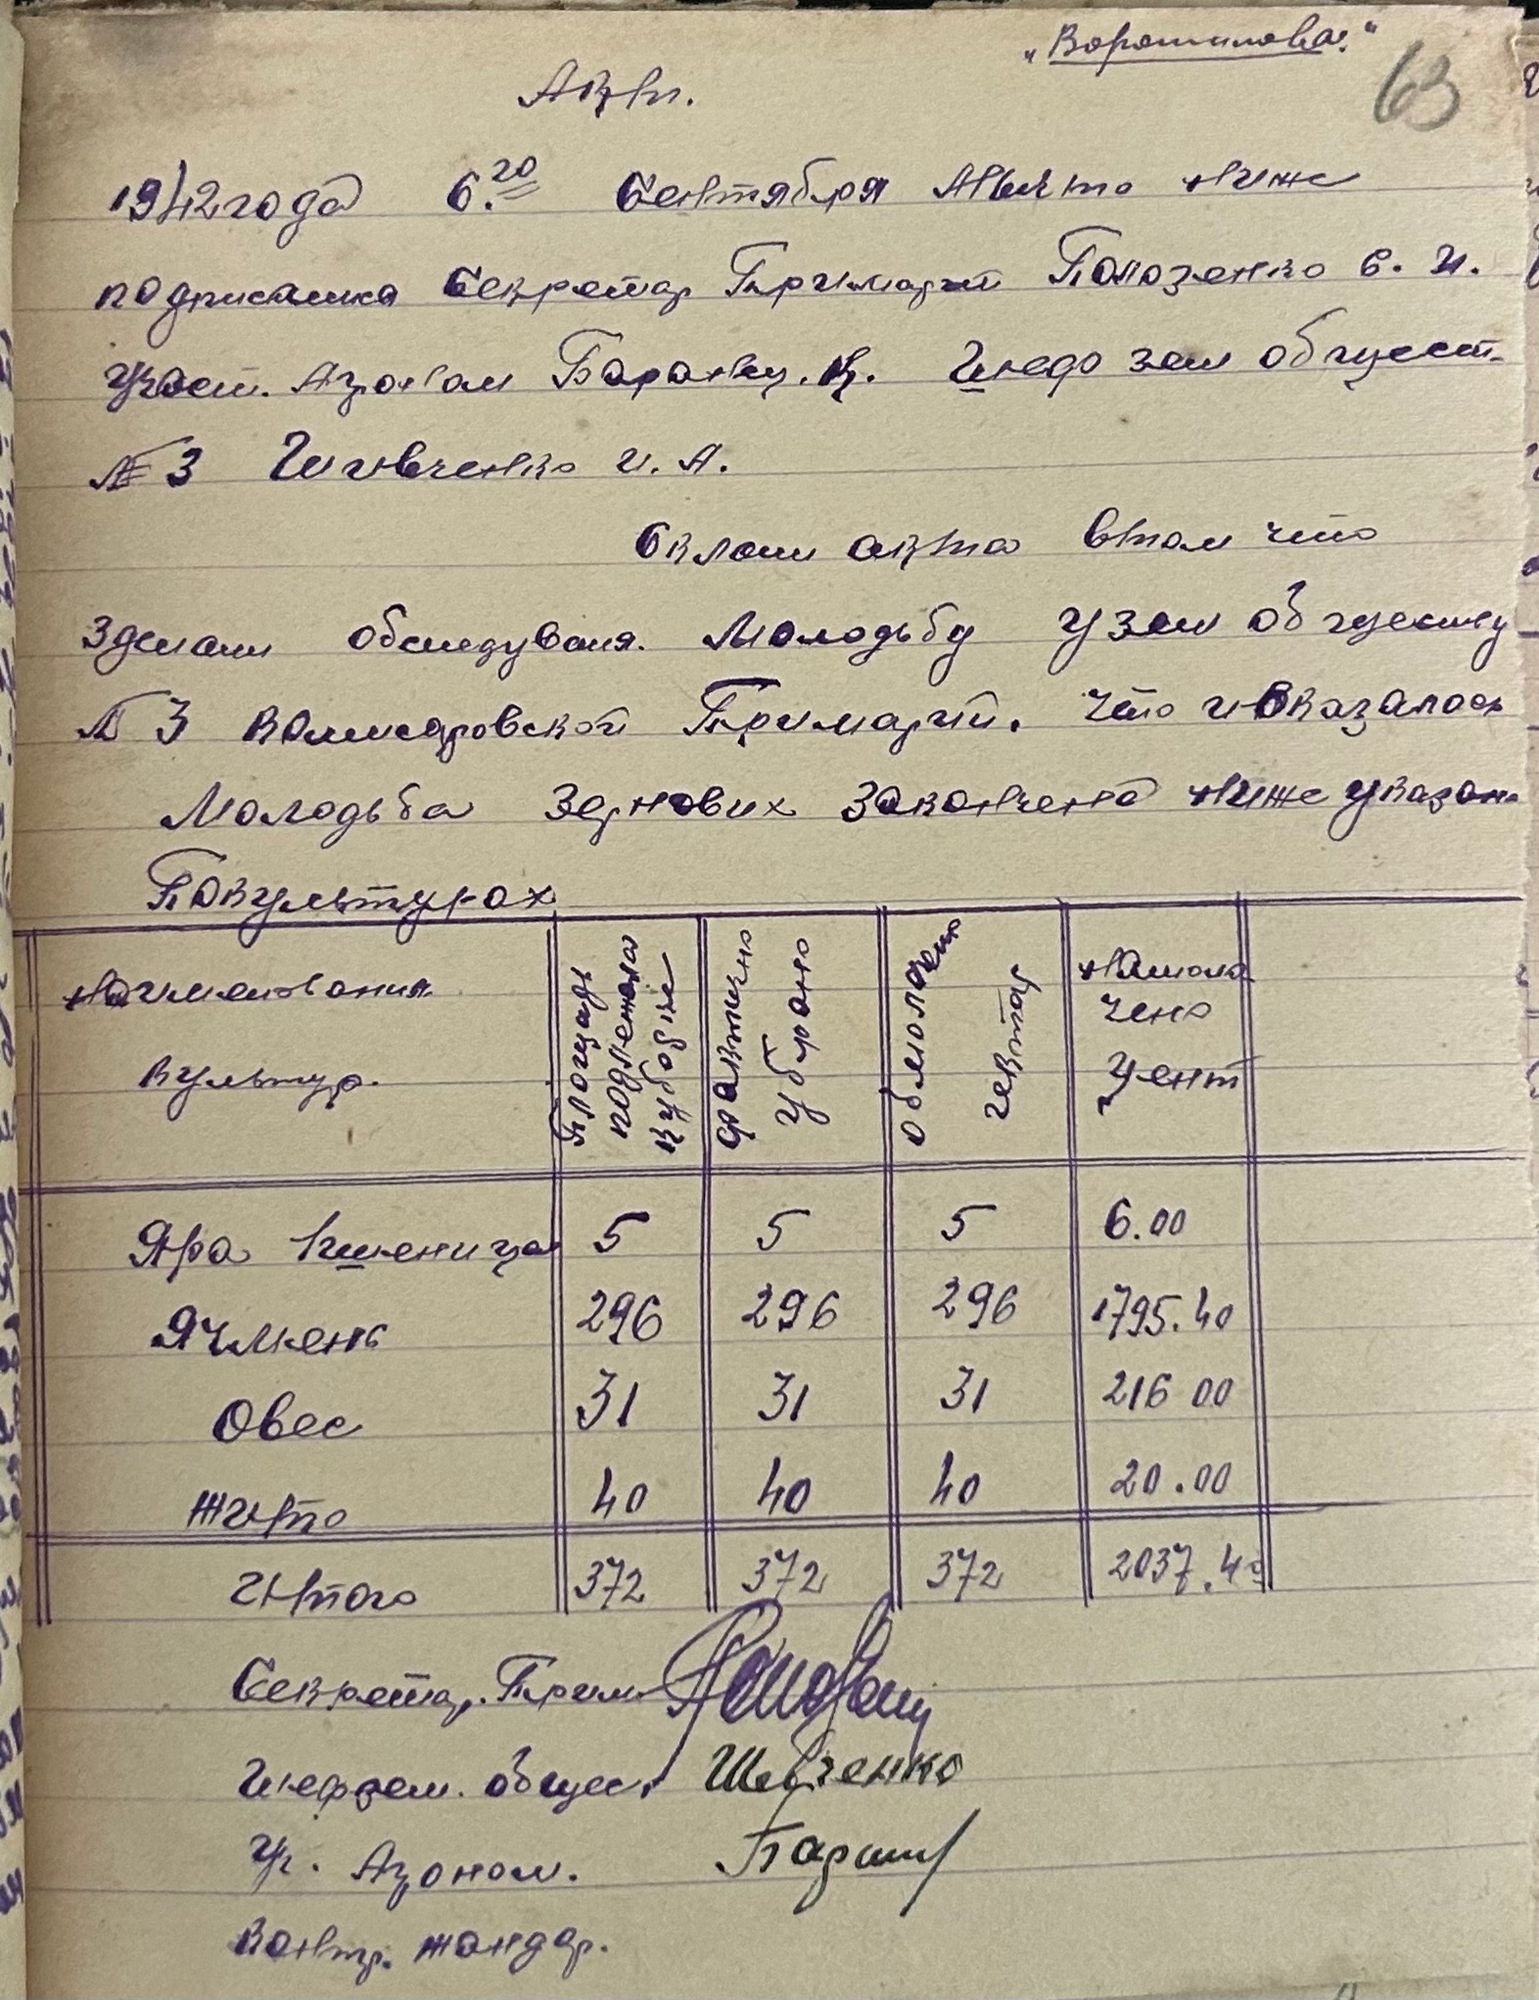 „Ворошилова."
63
Акт.
1942 года 6.го Сентября Мычто ниже
подписалися Секретар Примарии Полозенко С. И.
Участ. Агроном Баранец. К. Шефа зем общест.
№ 3 Шевченко И. А.
Склали акта втом что
Зделали обследуваня. Молодьбу узем обществу
№ 3 Комисаровской Примарии. что и оказалось
Молодьба зернових закончена ниже указан.
По культурах
Наименования культур. | Площадь подлежала к уборке | фактично убрано | обмолочено гектар | намоло чено цент
Яра пшеница 5 5 5 6.00
Ячмень 296 296 296 1795.40
Овес 31 31 31 216 00
Жито 40 40 40 20.00
Итого 372 372 372 2037.40
Секретар. Прим.
Шеф зем. общес. Шевченко
Уч. Агроном.
Контр. жандар.